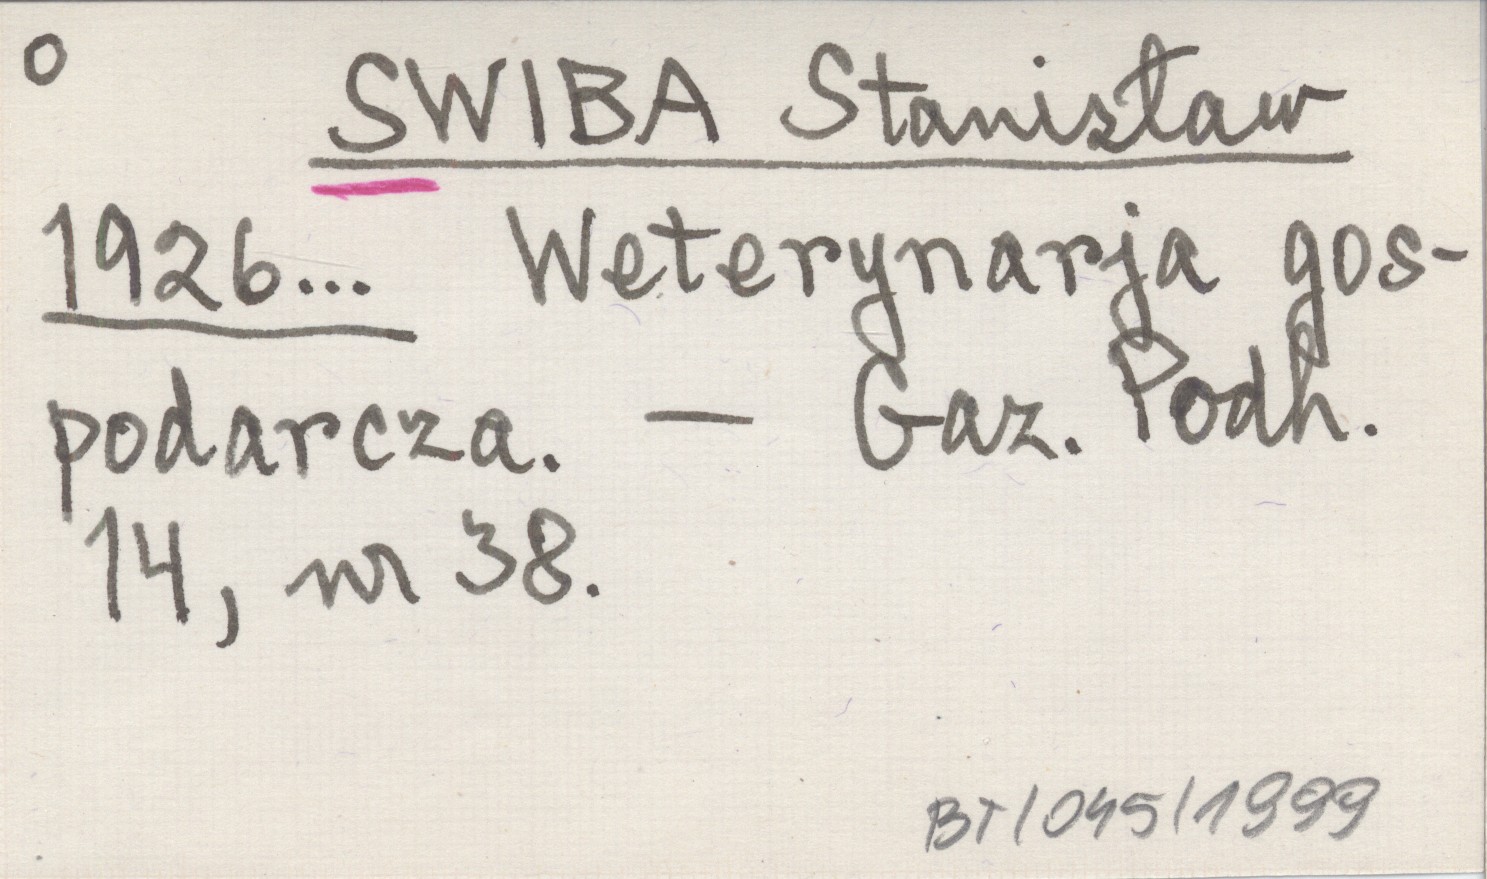 O
SWIBA Stanisław
1926... Weterynarja gos-
podarcza. — Gaz. Podh.
14, nr 38.
BT/045/1999